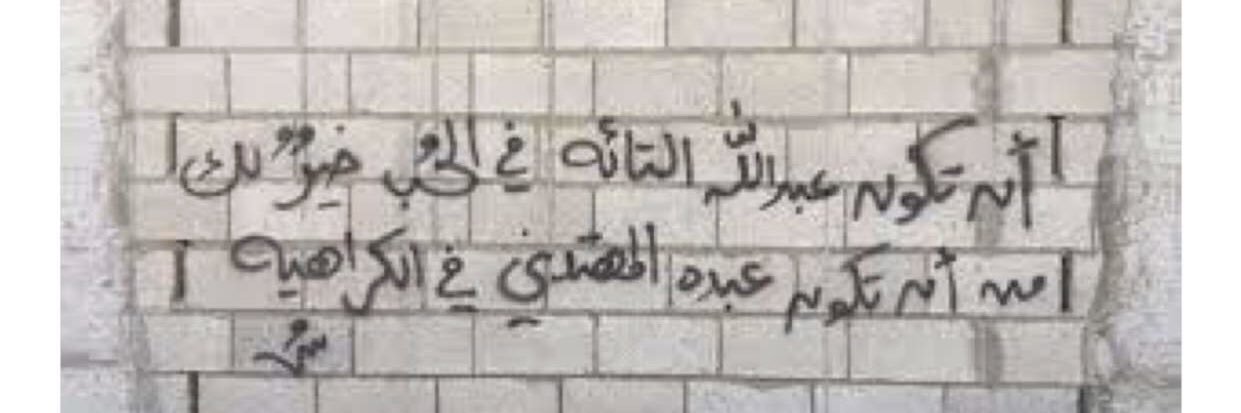 أن تكون عبدالله التائه في الحُب خيرٌ لك
من أن تكون عبده المهتدي في الكراهيه